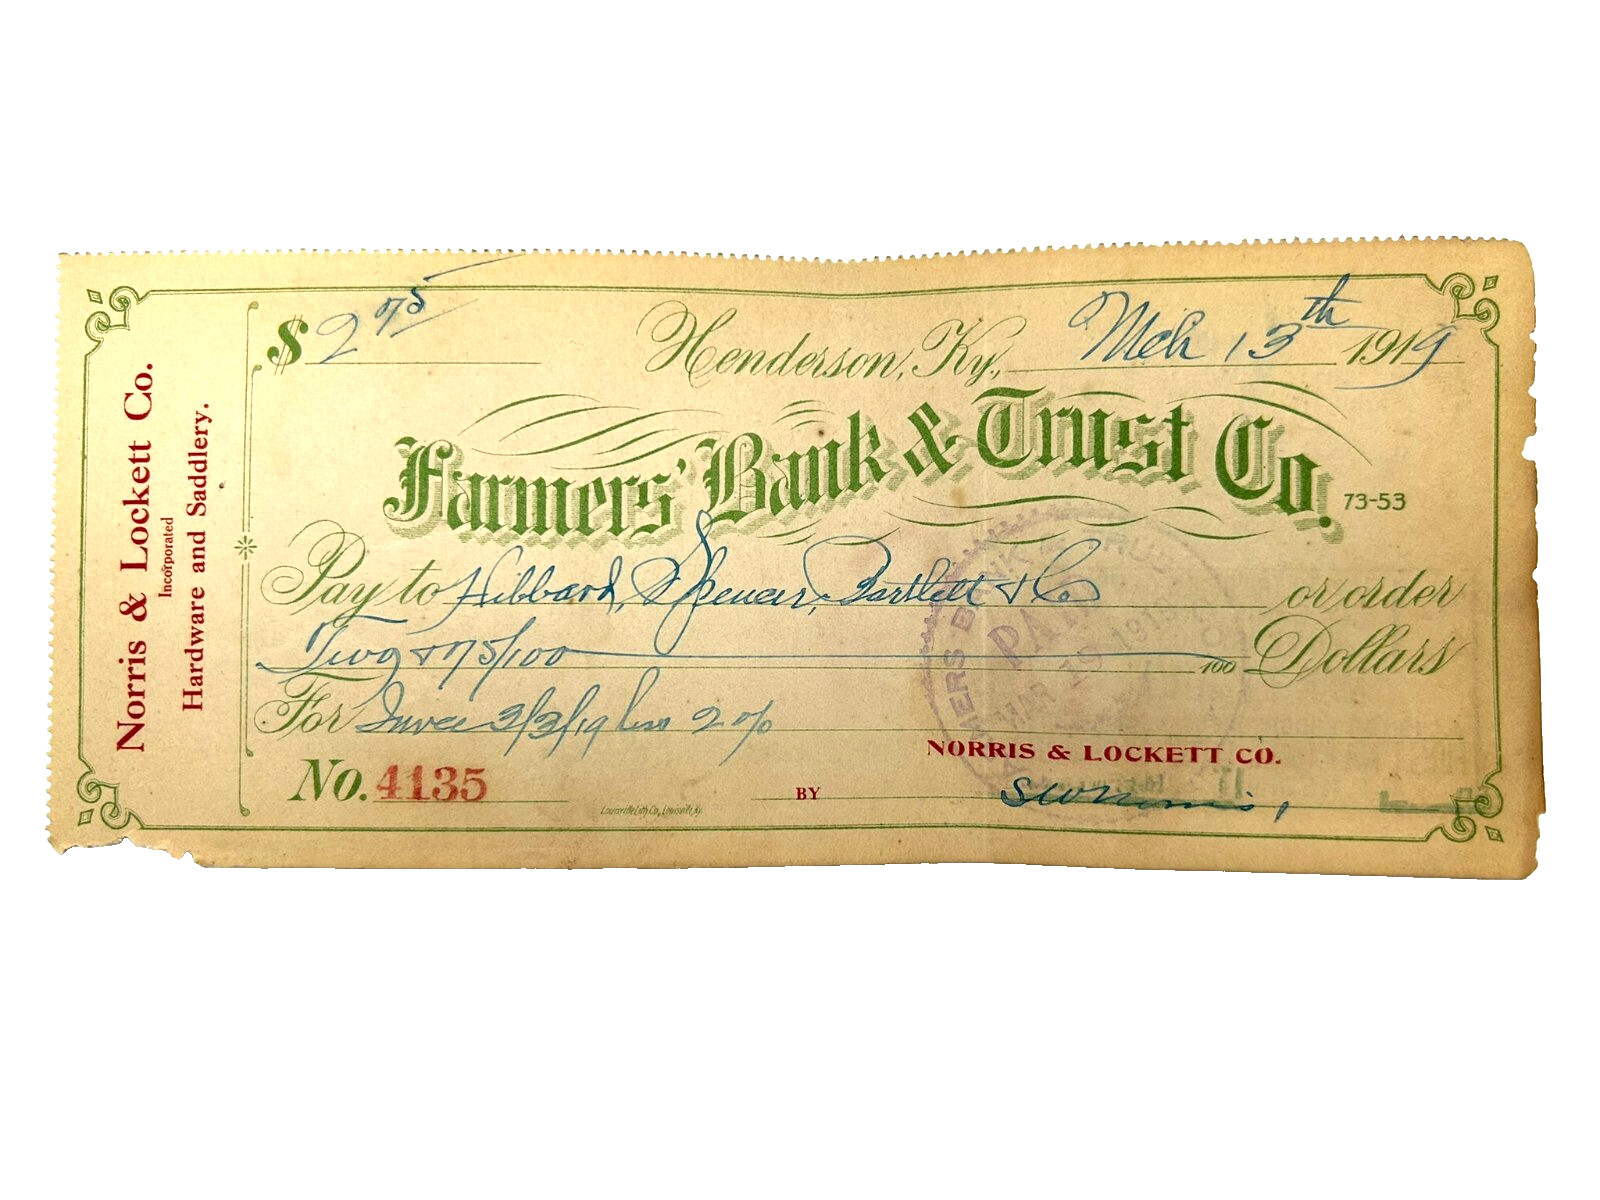 Norris & Lockett Co.
Incorporated
Hardware and Saddlery.
$ 2 75
Henderson, Ky., Mch 13th 1919
Farmers' Bank & Trust Co. 73-53
Pay to Hibbard, Spencer, Bartlett & Co or order
Two & 75/100 100 Dollars
For Invce 3/3/19 less 2 %
NORRIS & LOCKETT CO.
No. 4135 BY SW Norris,
Louisville Lith Co., Louisville, Ky.
PAID
MAR 19 1919